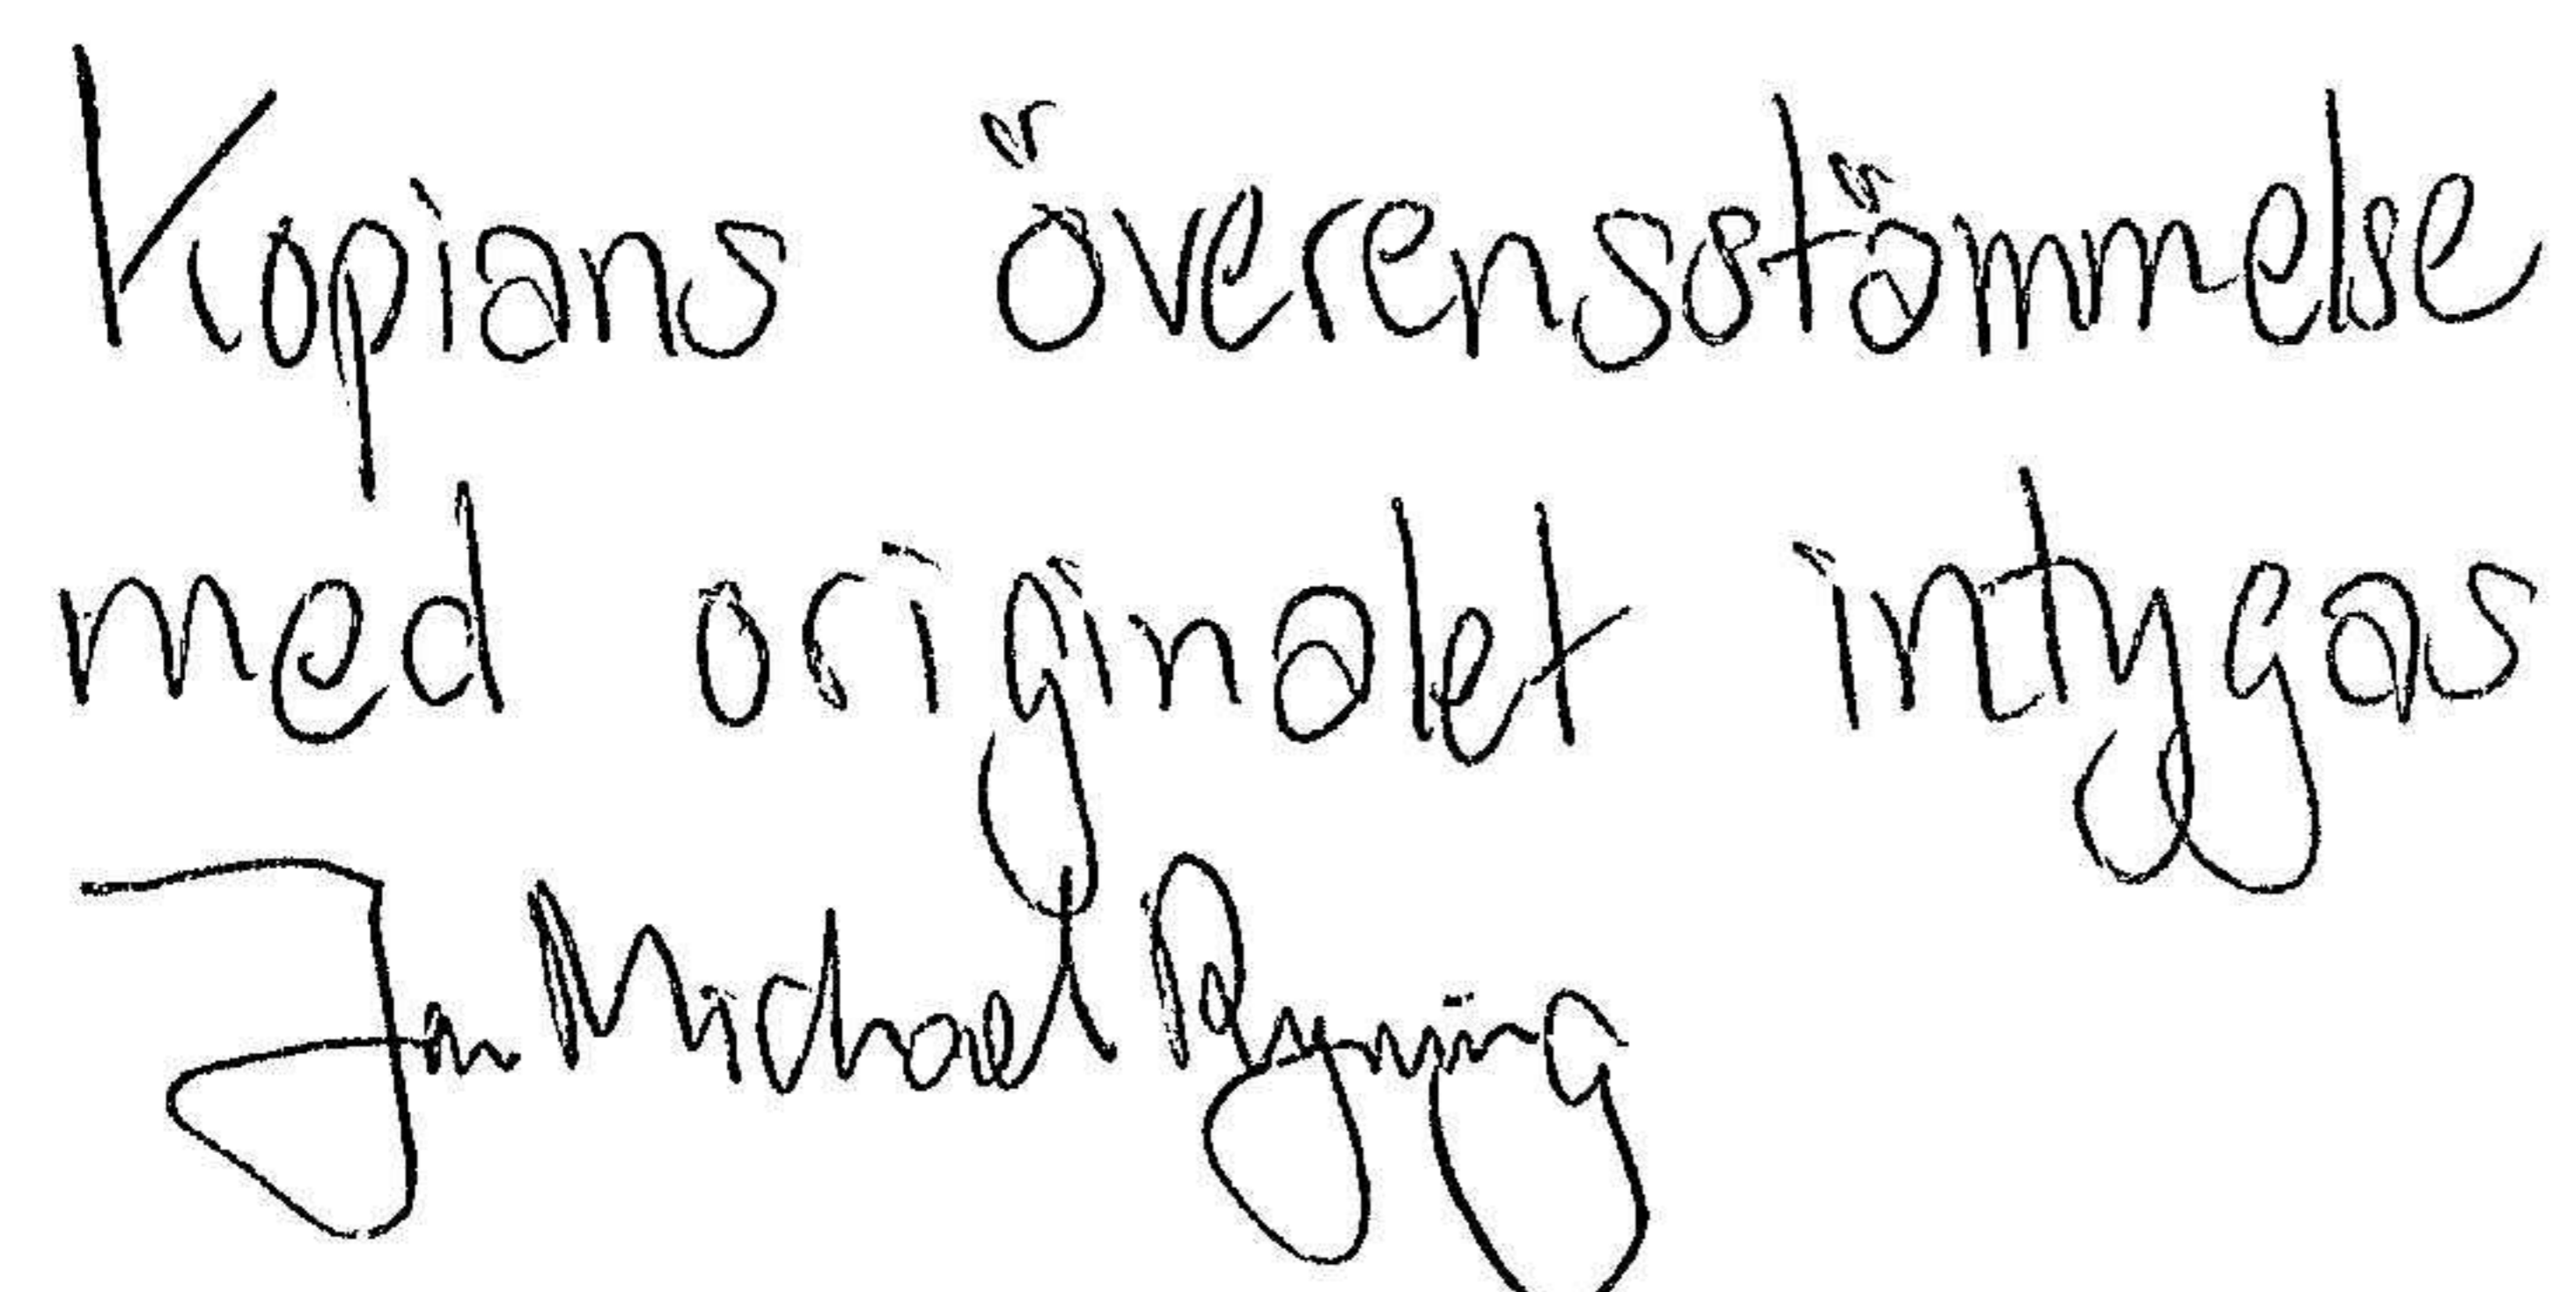 Kopians överensstämmelse
med originalet intygas
Jan Michael Ryning